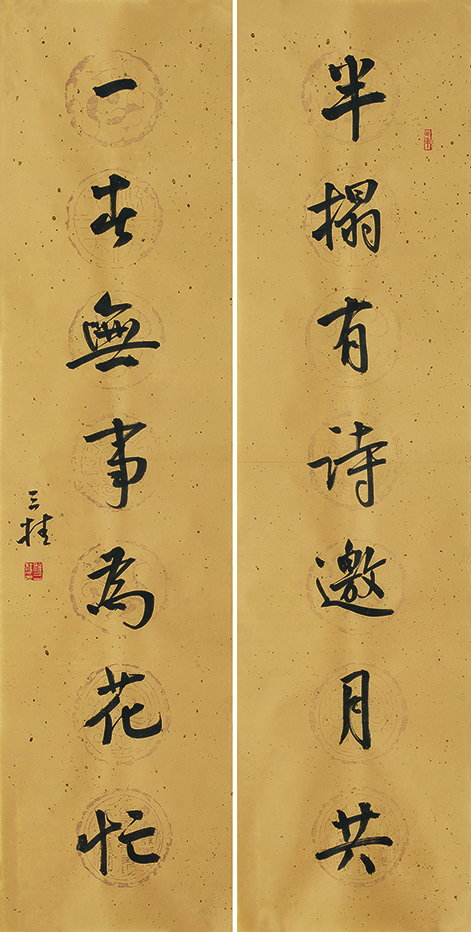 半榻有诗邀月共
一春無事為花忙
三桂